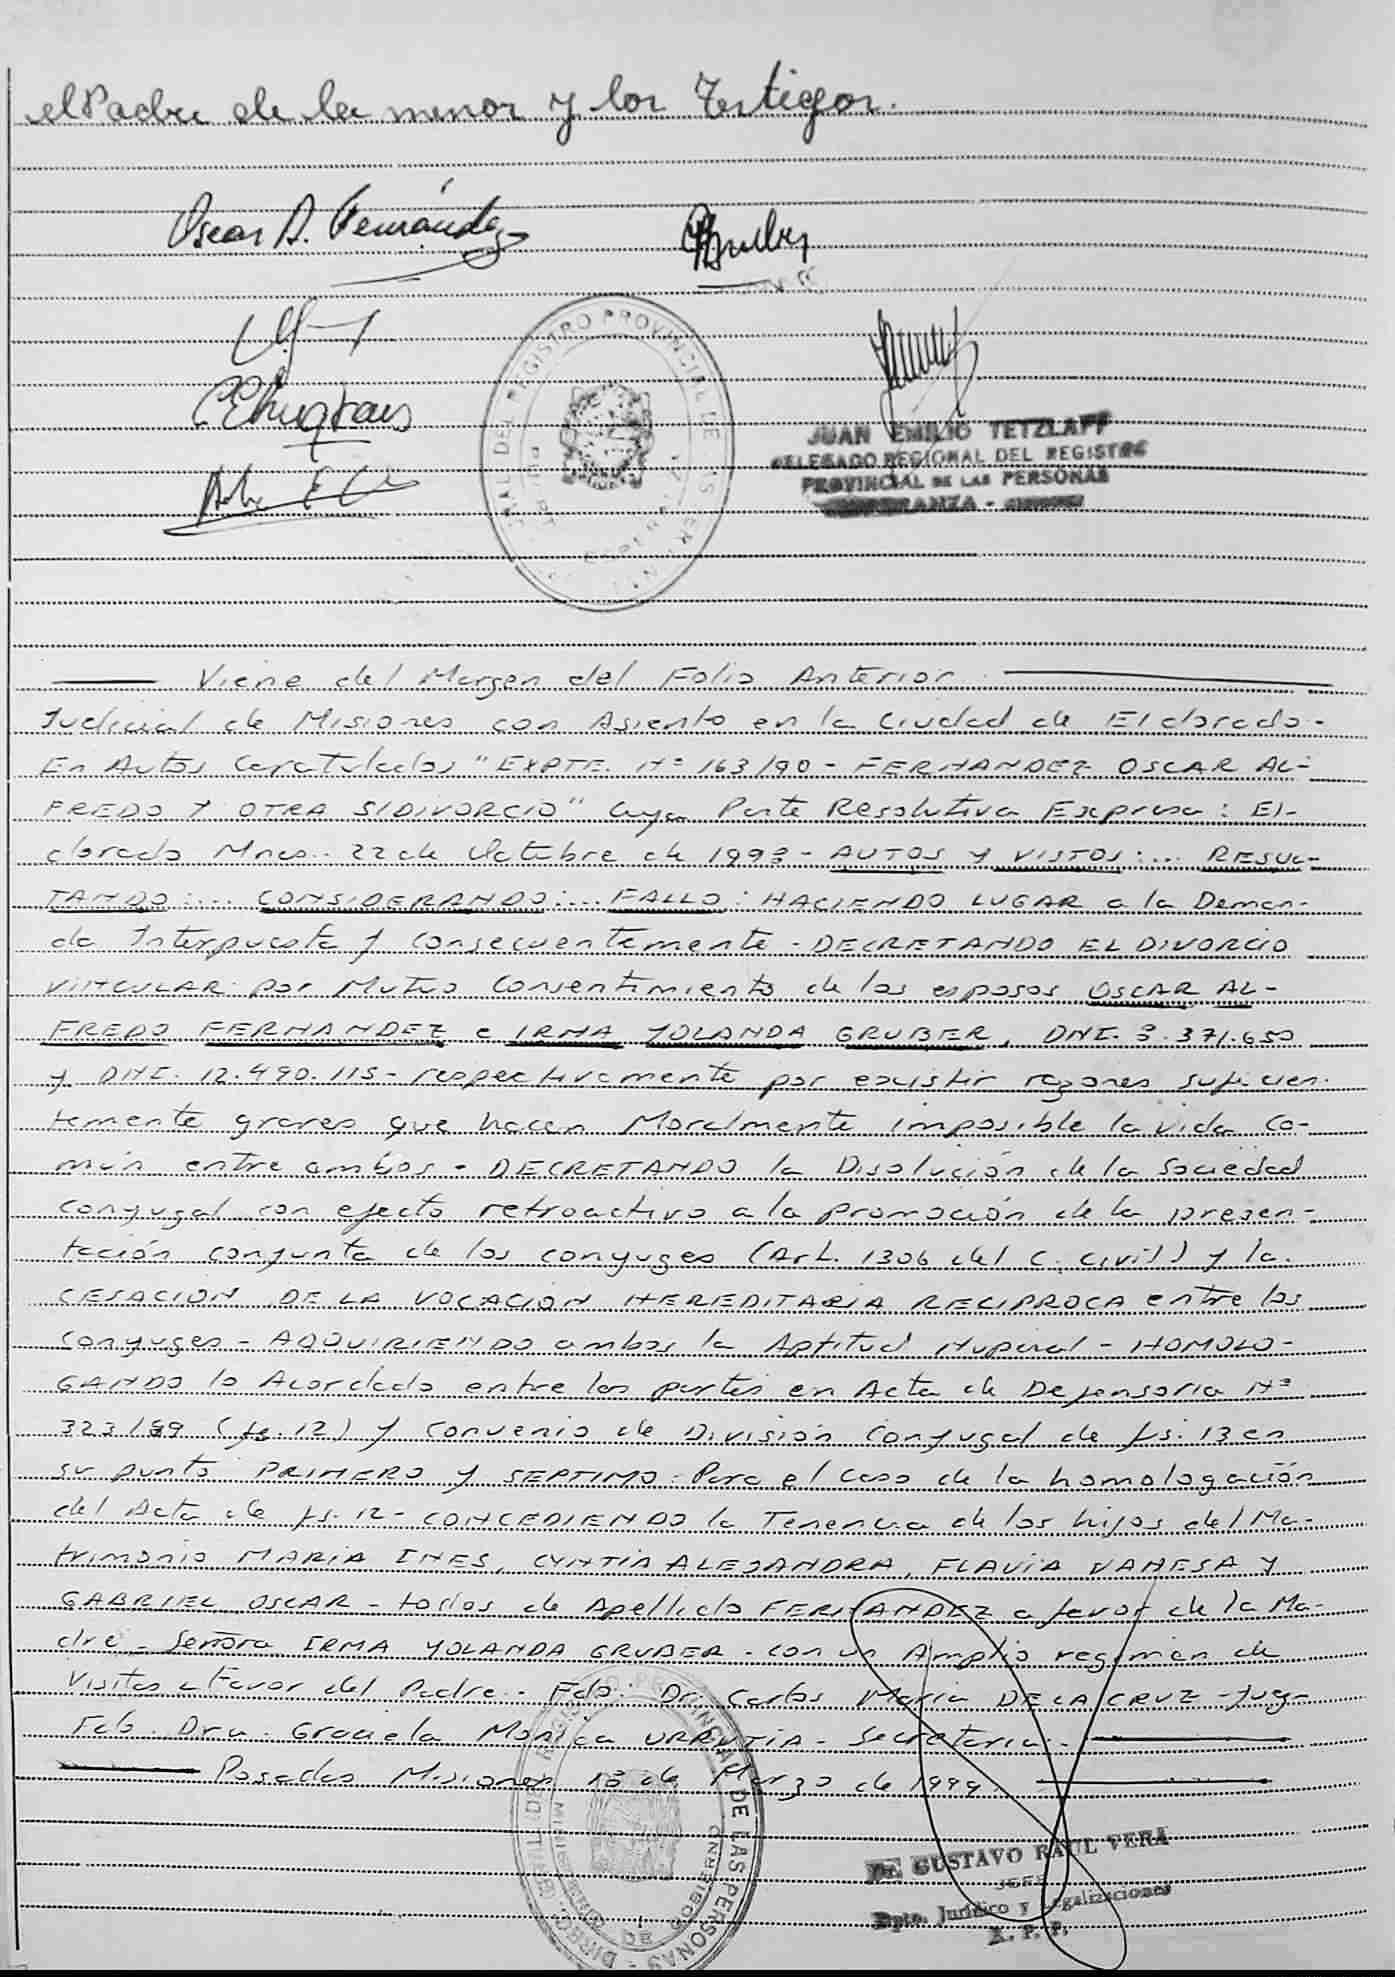 el Padre de la menor y los Testigos.
Oscar A. Fernández
REGISTRO PROVINCIAL DE LAS PER
JUAN EMILIO TETZLAFF
DELEGADO REGIONAL DEL REGISTRO
PROVINCIAL DE LAS PERSONAS
Viene del Margen del Folio Anterior
Judicial de Misiones con Asiento en la Ciudad de Eldorado -
En Autos Caratulados "EXPTE. Nº 163/90 - FERNANDEZ OSCAR AL-
FREDO Y OTRA S/DIVORCIO" Cuya Parte Resolutiva Expresa: El-
dorado Mnes.. 22 de Octubre de 1993 - AUTOS Y VISTOS:... RESUL-
TANDO:... CONSIDERANDO:... FALLO: HACIENDO LUGAR a la Deman-
da Interpuesta y Consecuentemente - DECRETANDO EL DIVORCIO
VINCULAR por Mutuo Consentimiento de los esposos OSCAR AL-
FREDO FERNANDEZ e IRMA YOLANDA GRUBER, DNI. 371.650
y DNI. 12.490.115 - respectivamente por existir razones suficien-
temente graves que hacen Moralmente imposible la vida Co-
mún entre ambos - DECRETANDO la Disolución de la Sociedad
Conyugal con efecto retroactivo a la promoción de la presen-
tación conjunta de los conyuges (Art. 1306 del C. Civil) y la
CESACION DE LA VOCACION HEREDITARIA RECIPROCA entre los
Conyuges - ADQUIRIENDO ambos la Aptitud Nupcial - HOMOLO-
GANDO lo Acordado entre las partes en Acta de Defensoria Nº
323/89 (fs. 12) y Convenio de División Conyugal de fs. 13 en
su punto PRIMERO Y SEPTIMO: Para el caso de la homologación
del Acta de fs. 12 - CONCEDIENDO la Tenencia de los hijos del Ma-
trimonio MARIA INES, CYNTIA ALEJANDRA, FLAVIA VANESA Y
GABRIEL OSCAR - todos de Apellido FERNANDEZ a favor de la Ma-
dre - Señora IRMA YOLANDA GRUBER - con un Amplio regimen de
Visitas a Favor del Padre - Fdo. Dr. Carlos Maria DE LA CRUZ - Juez -
Fdo. Dra. Graciela Monica URRUTIA - Secretaria -
Posadas Misiones 18 de Marzo de 1999.
PROVINCIAL DE LAS PERSONAS
Dr. GUSTAVO RAUL VERA
JEFE
Dpto. Jurídico y Legalizaciones
R. P. P.